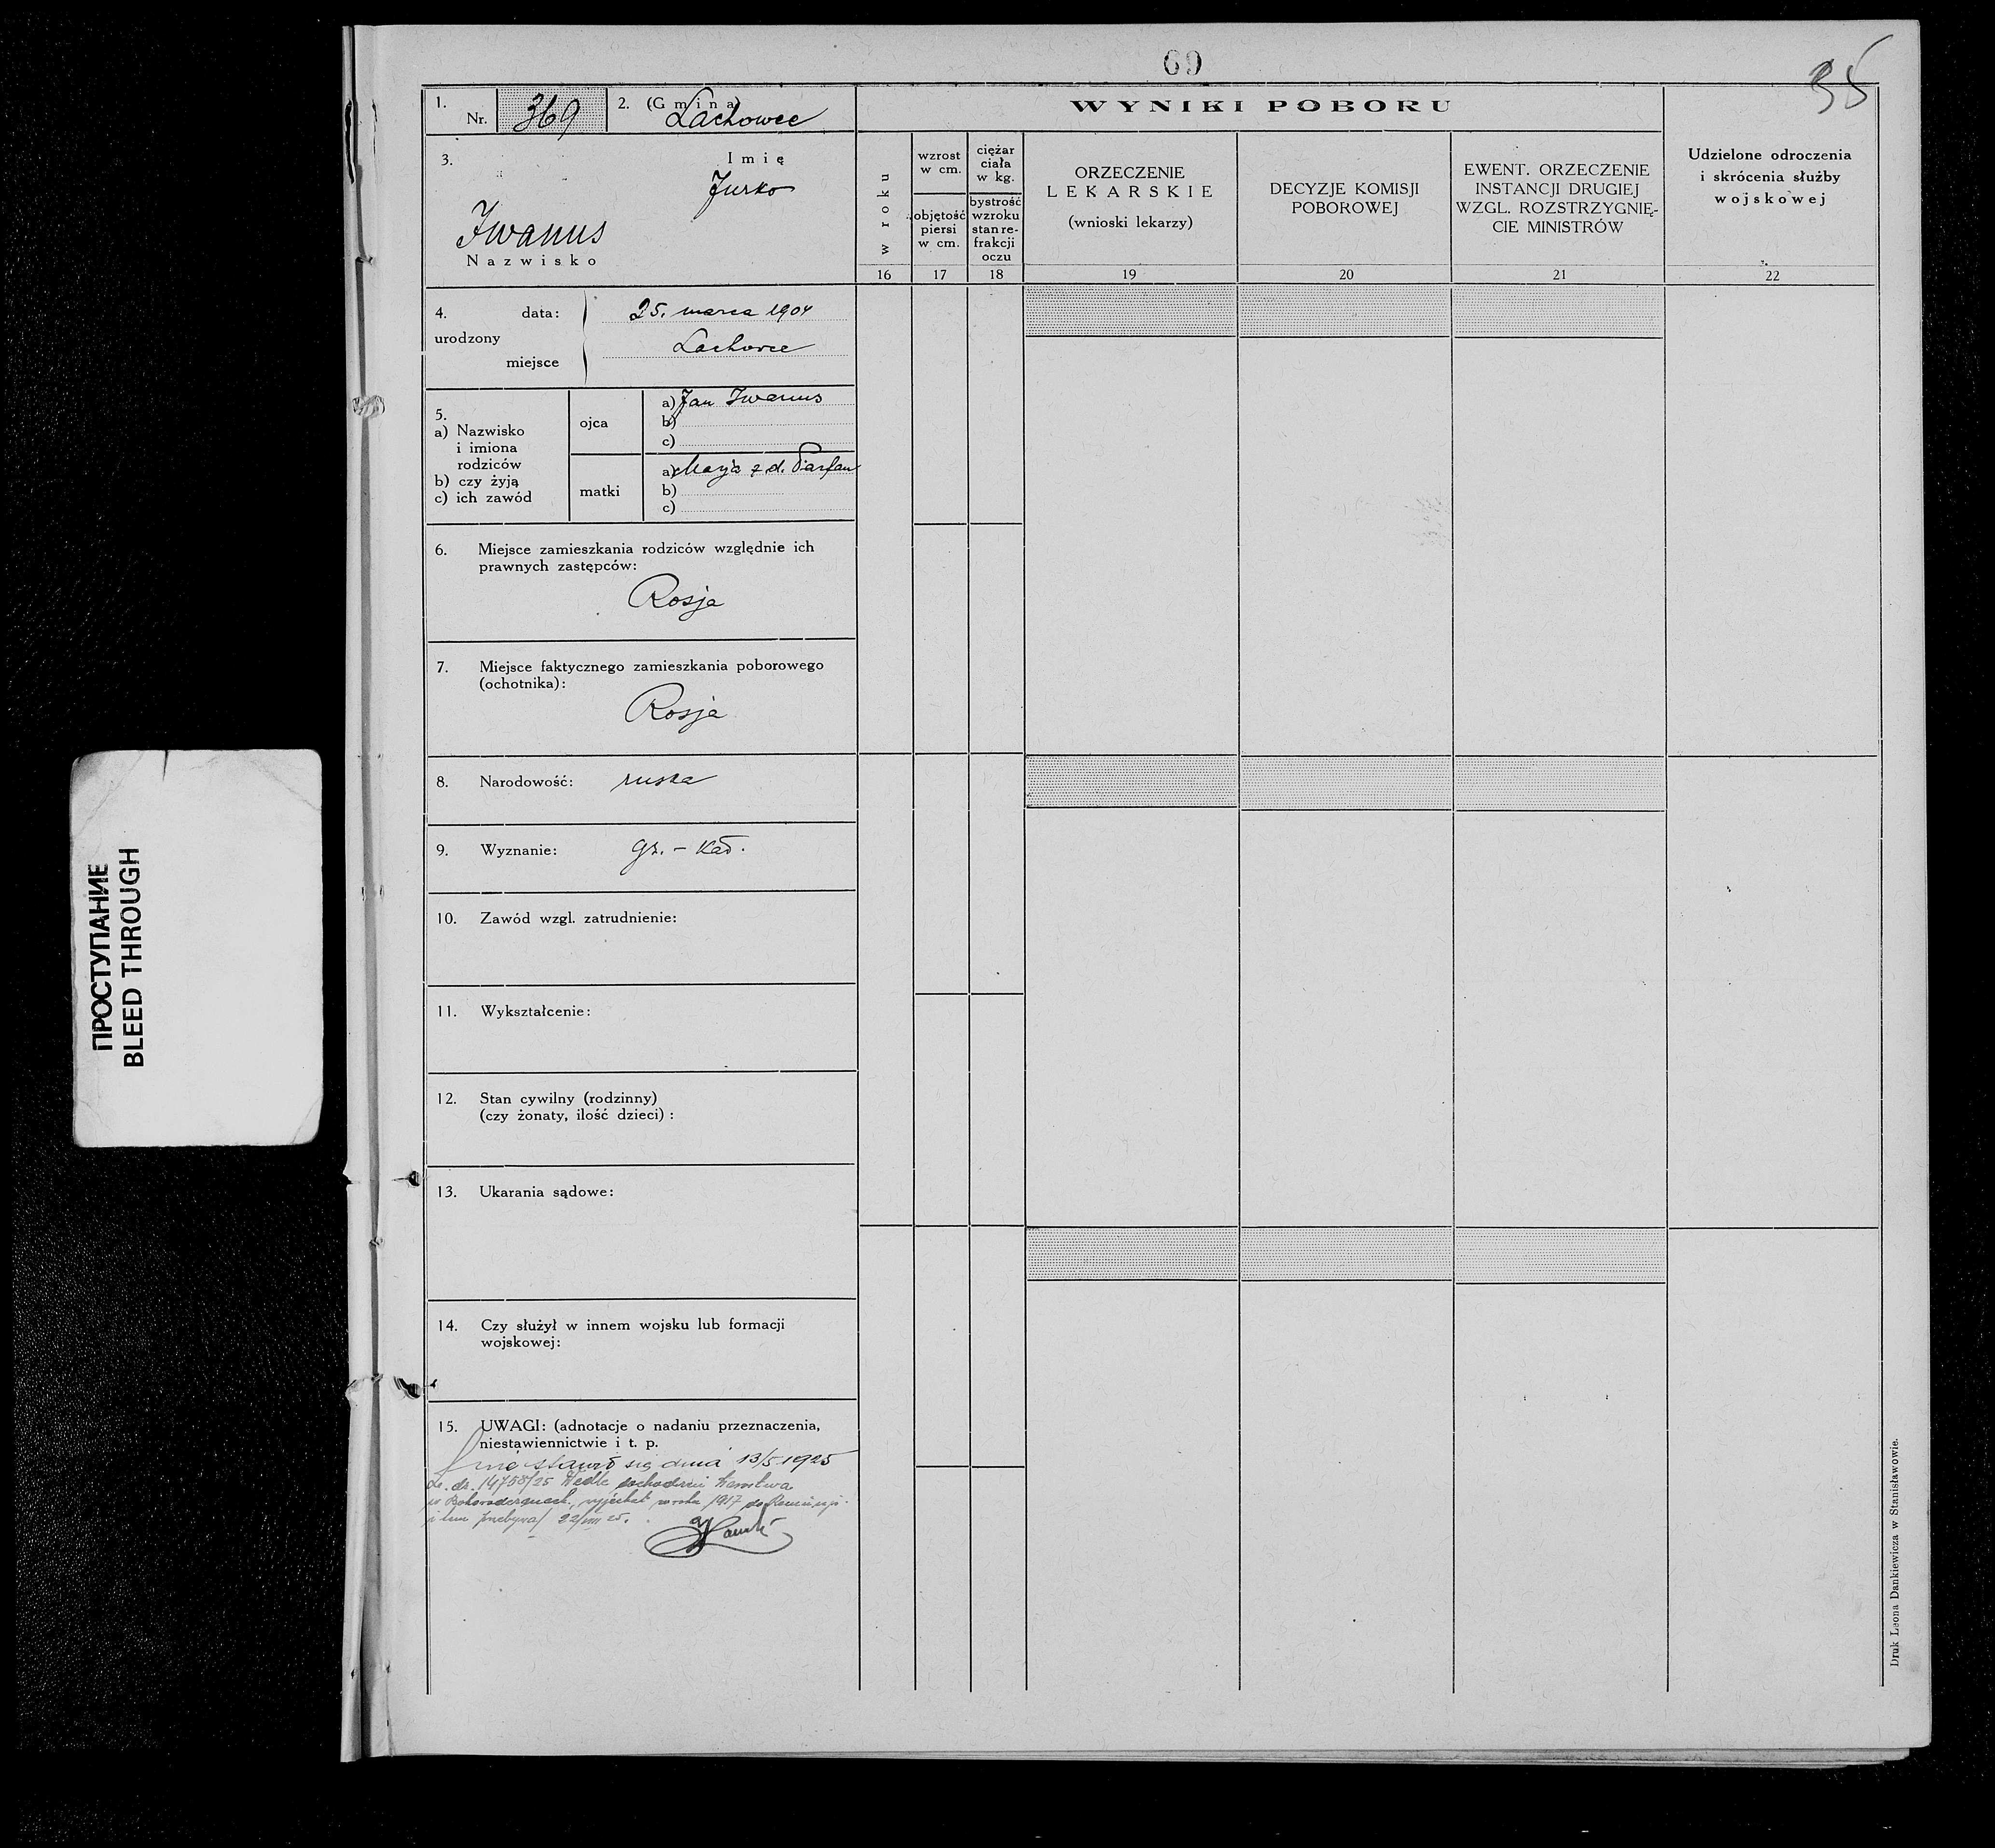 69
35
1. Nr. 369
2. (Gmina) Lachowce
WYNIKI POBORU
3.
Imię
Jurko
Iwanus
Nazwisko
w roku
wzrost
w cm.
objętość
piersi
w cm.
ciężar
ciała
w kg.
bystrość
wzroku
stan re-
frakcji
oczu
ORZECZENIE
LEKARSKIE
(wnioski lekarzy)
DECYZJE KOMISJI
POBOROWEJ
EWENT. ORZECZENIE
INSTANCJI DRUGIEJ
WZGL. ROZSTRZYGNIĘ-
CIE MINISTRÓW
Udzielone odroczenia
i skrócenia służby
wojskowej
16 17 18 19 20 21 22
4. data: 25. marca 1904
urodzony
Lachowce
miejsce
5.
a) Nazwisko
i imiona
rodziców
b) czy żyją
c) ich zawód
ojca
a) Jan Iwanus
b)
c)
matki
a) Marja z d. Parfan
b)
c)
6. Miejsce zamieszkania rodziców względnie ich
prawnych zastępców:
Rosja
7. Miejsce faktycznego zamieszkania poborowego
(ochotnika):
Rosja
8. Narodowość: ruska
9. Wyznanie: gr. - kat.
10. Zawód wzgl. zatrudnienie:
11. Wykształcenie:
12. Stan cywilny (rodzinny)
(czy żonaty, ilość dzieci) :
13. Ukarania sądowe:
14. Czy służył w innem wojsku lub formacji
wojskowej:
15. UWAGI: (adnotacje o nadaniu przeznaczenia,
niestawiennictwie i t. p.
nie stawił się dnia 13/5 1925
L. dz. 14758/25 Wedle dochodzeń
wyjechał w roku 1917 do
i tam przebywa/ 22/VIII 25.
Druk Leona Dankiewicza w Stanisławowie.
ПРОСТУПАНИЕ
BLEED THROUGH